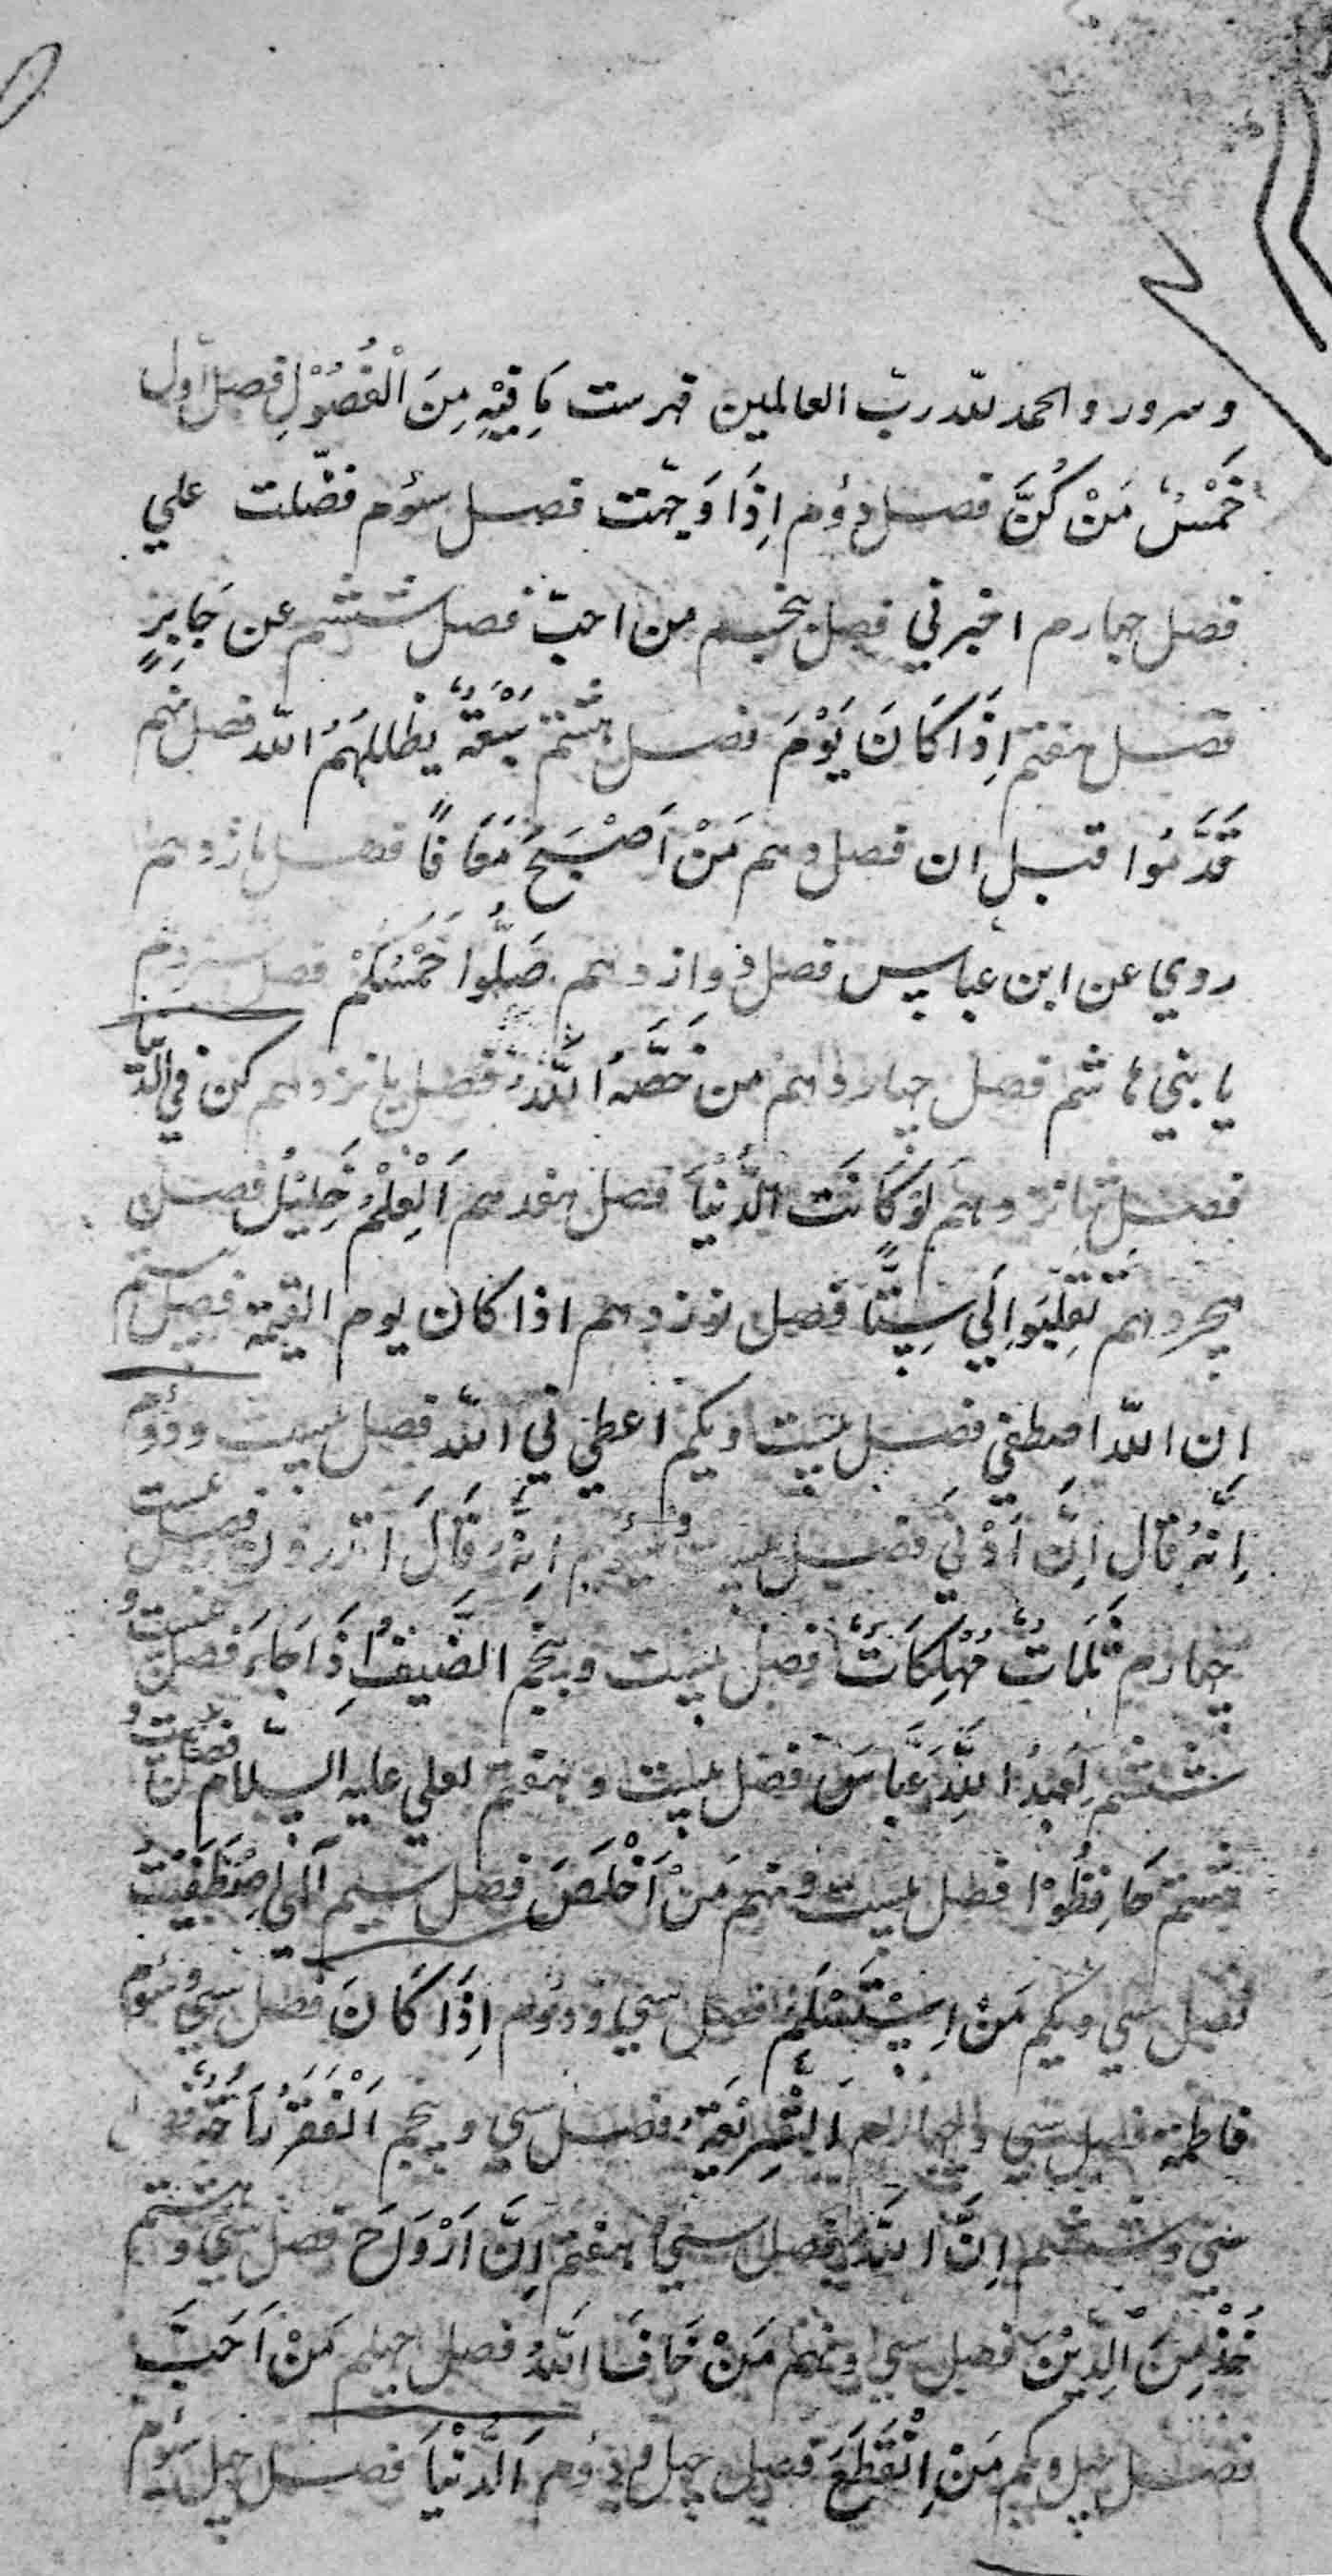 و سرور و الحمد لله ربّ العالمين فهرست مَافِيْهِ مِنَ الْفُصُوْلِ فصل اول
خَمْسٌ مَنْ كُنَّ فصل دؤم اِذَا وَجبت فصل سؤم فضّلت علي
فصل چهارم اخبرني فصل پنجم من احبّ فصل ششم عن جَابِرٍ
فصل هفتم اِذَا كَانَ يَوْمَ فصل هشتم سَبْعَةٌ يظللهُمُ اللّه فصل نهم
قَدَّمُوا قبل ان فصل دهم مَنْ اَصْبَحَ مَعَافًا فصل يازدهم
روي عن ابن عباس فصل دوازدهم صَلُّوا خَمْسَكُمْ فصل سيزدهم
يا بني هاشم فصل چهاردهم من خَصَّهُ اللّٰهُ فصل پانزدهم كن في الدنيا
فصل شانزدهم لَوْ كَانَت الدُّنْيَا فصل هفدهم اَلْعِلْمُ خَلِيْلُ فصل
هجردهم تقبّلوا اِلَي سِتًّا فصل نوزدهم اذا كان يوم القيمة فصل بستم
ان اللّه اصطفي فصل بيست و يكم اعطي ني اللّه فصل بيست و دؤم
اِنَّهُ قال اِنَّ اَدْنَي فصل بيست و سيؤم اِنّهُ قَالَ اتدرون فصل بيست
چهارم ثَلَاثٌ مُهْلِكَاتٌ فصل بيست و پنجم الضَّيفُ اِذَا جَاءَ فصل بيست و
ششم لِعَبْدُ اللّٰهِ عَبَّاسَ فصل بيست و هفتم لعلي عليه السّلام فصل بيست و
هشتم حَافِظُوْا فصل بيست و نهم مَنْ اَخْلَصَ فصل سيم اِنّي اِصْطَفَيْتُ
فصل سي و يكم مَنْ اِسْتَسْلَمَ فصل سي و دؤم اِذَا كَانَ فصل سي و سؤم
فاطمة فصل سي و چهارم الشَّرِيْعَةُ فصل سي و پنجم اَلْفَقْرُ رَاحَةٌ فصل
سي و ششم اِنَّ اللّٰهَ فصل سي و هفتم اِنَّ اَرْوَاحَ فصل سي و هشتم
خُذْ مِنَ الدِّيْنِ فصل سي و نهم مَنْ خَافَ اللّٰهُ فصل چهلم مَنْ اَحَبَّ
فصل چهل و يكم مَنِ انْقَطَعَ فصل چهل و دؤم اَلدُّنْيَا فصل چهل سؤم